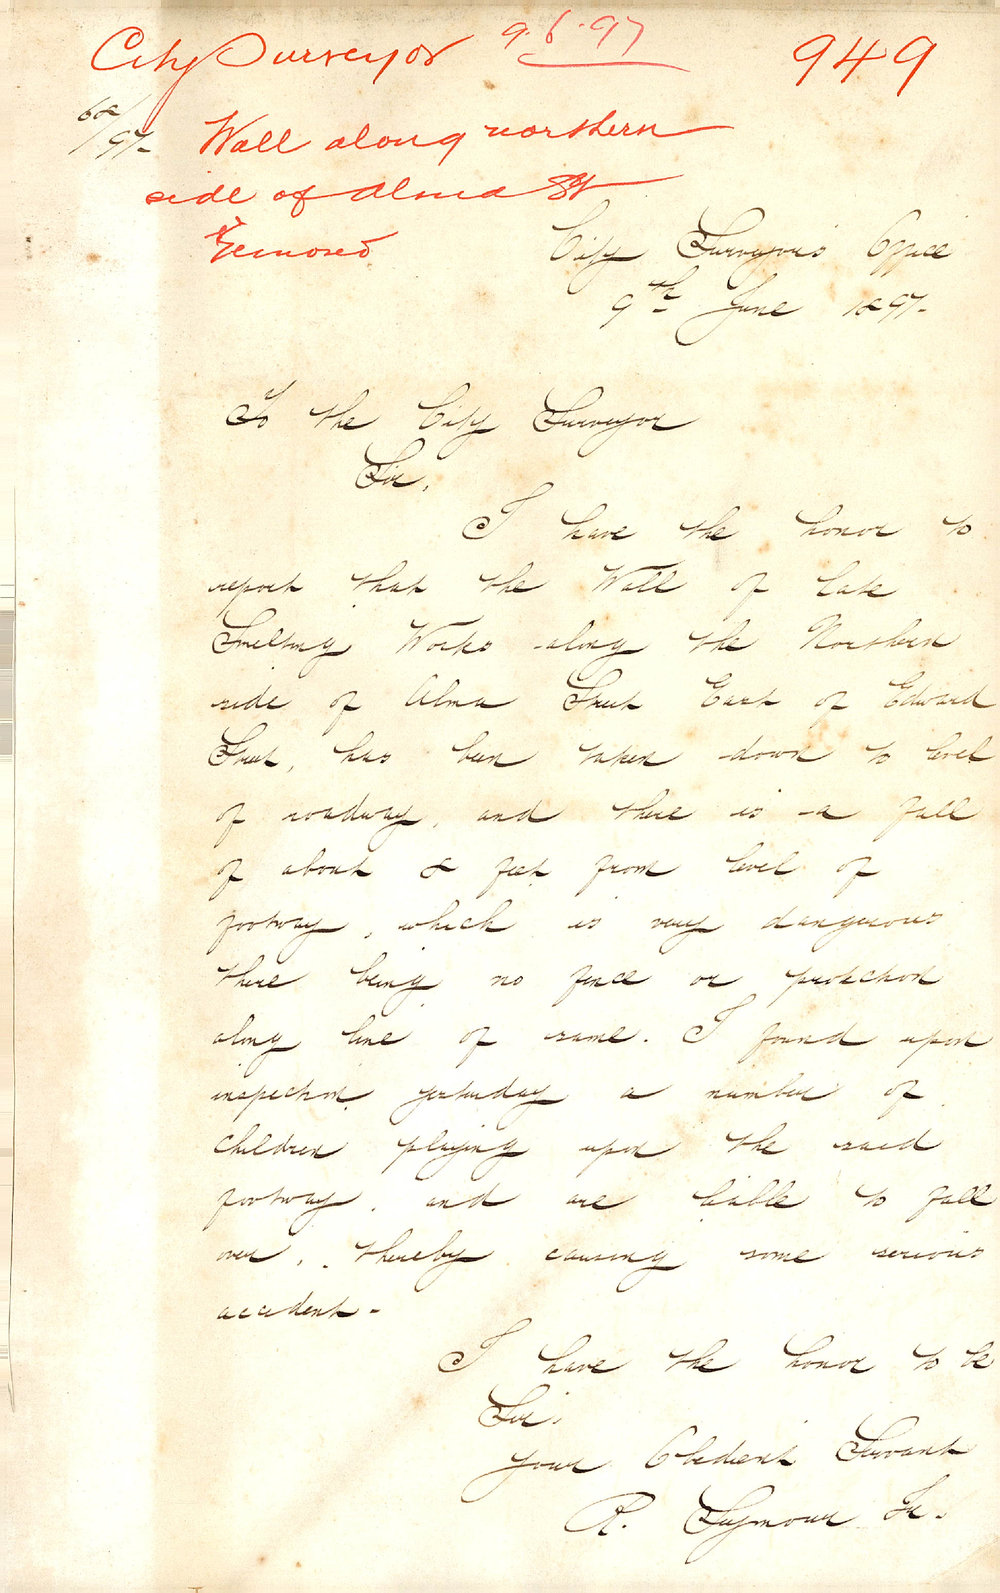 City Surveyor 9.6.97 949
68/97- Wall along northern
side of Alma St
removed
City Surveyor's Office
9th June 1897.
To the City Surveyor
Sir,
I have the honor to
report that the Wall of late
Smelting Works along the Northern
side of Alma Street East of Edward
Street, has been taken down to level
of roadway, and there is a fall
of about 8 feet from level of
footway, which is very dangerous
there being no fence or protection
along line of same. I found upon
inspection yesterday a number of
children playing upon the said
footway, and are liable to fall
over, thereby causing some serious
accident-
I have the honor to be
Sir,
Your Obedient Servant
R. Seymour Jr.